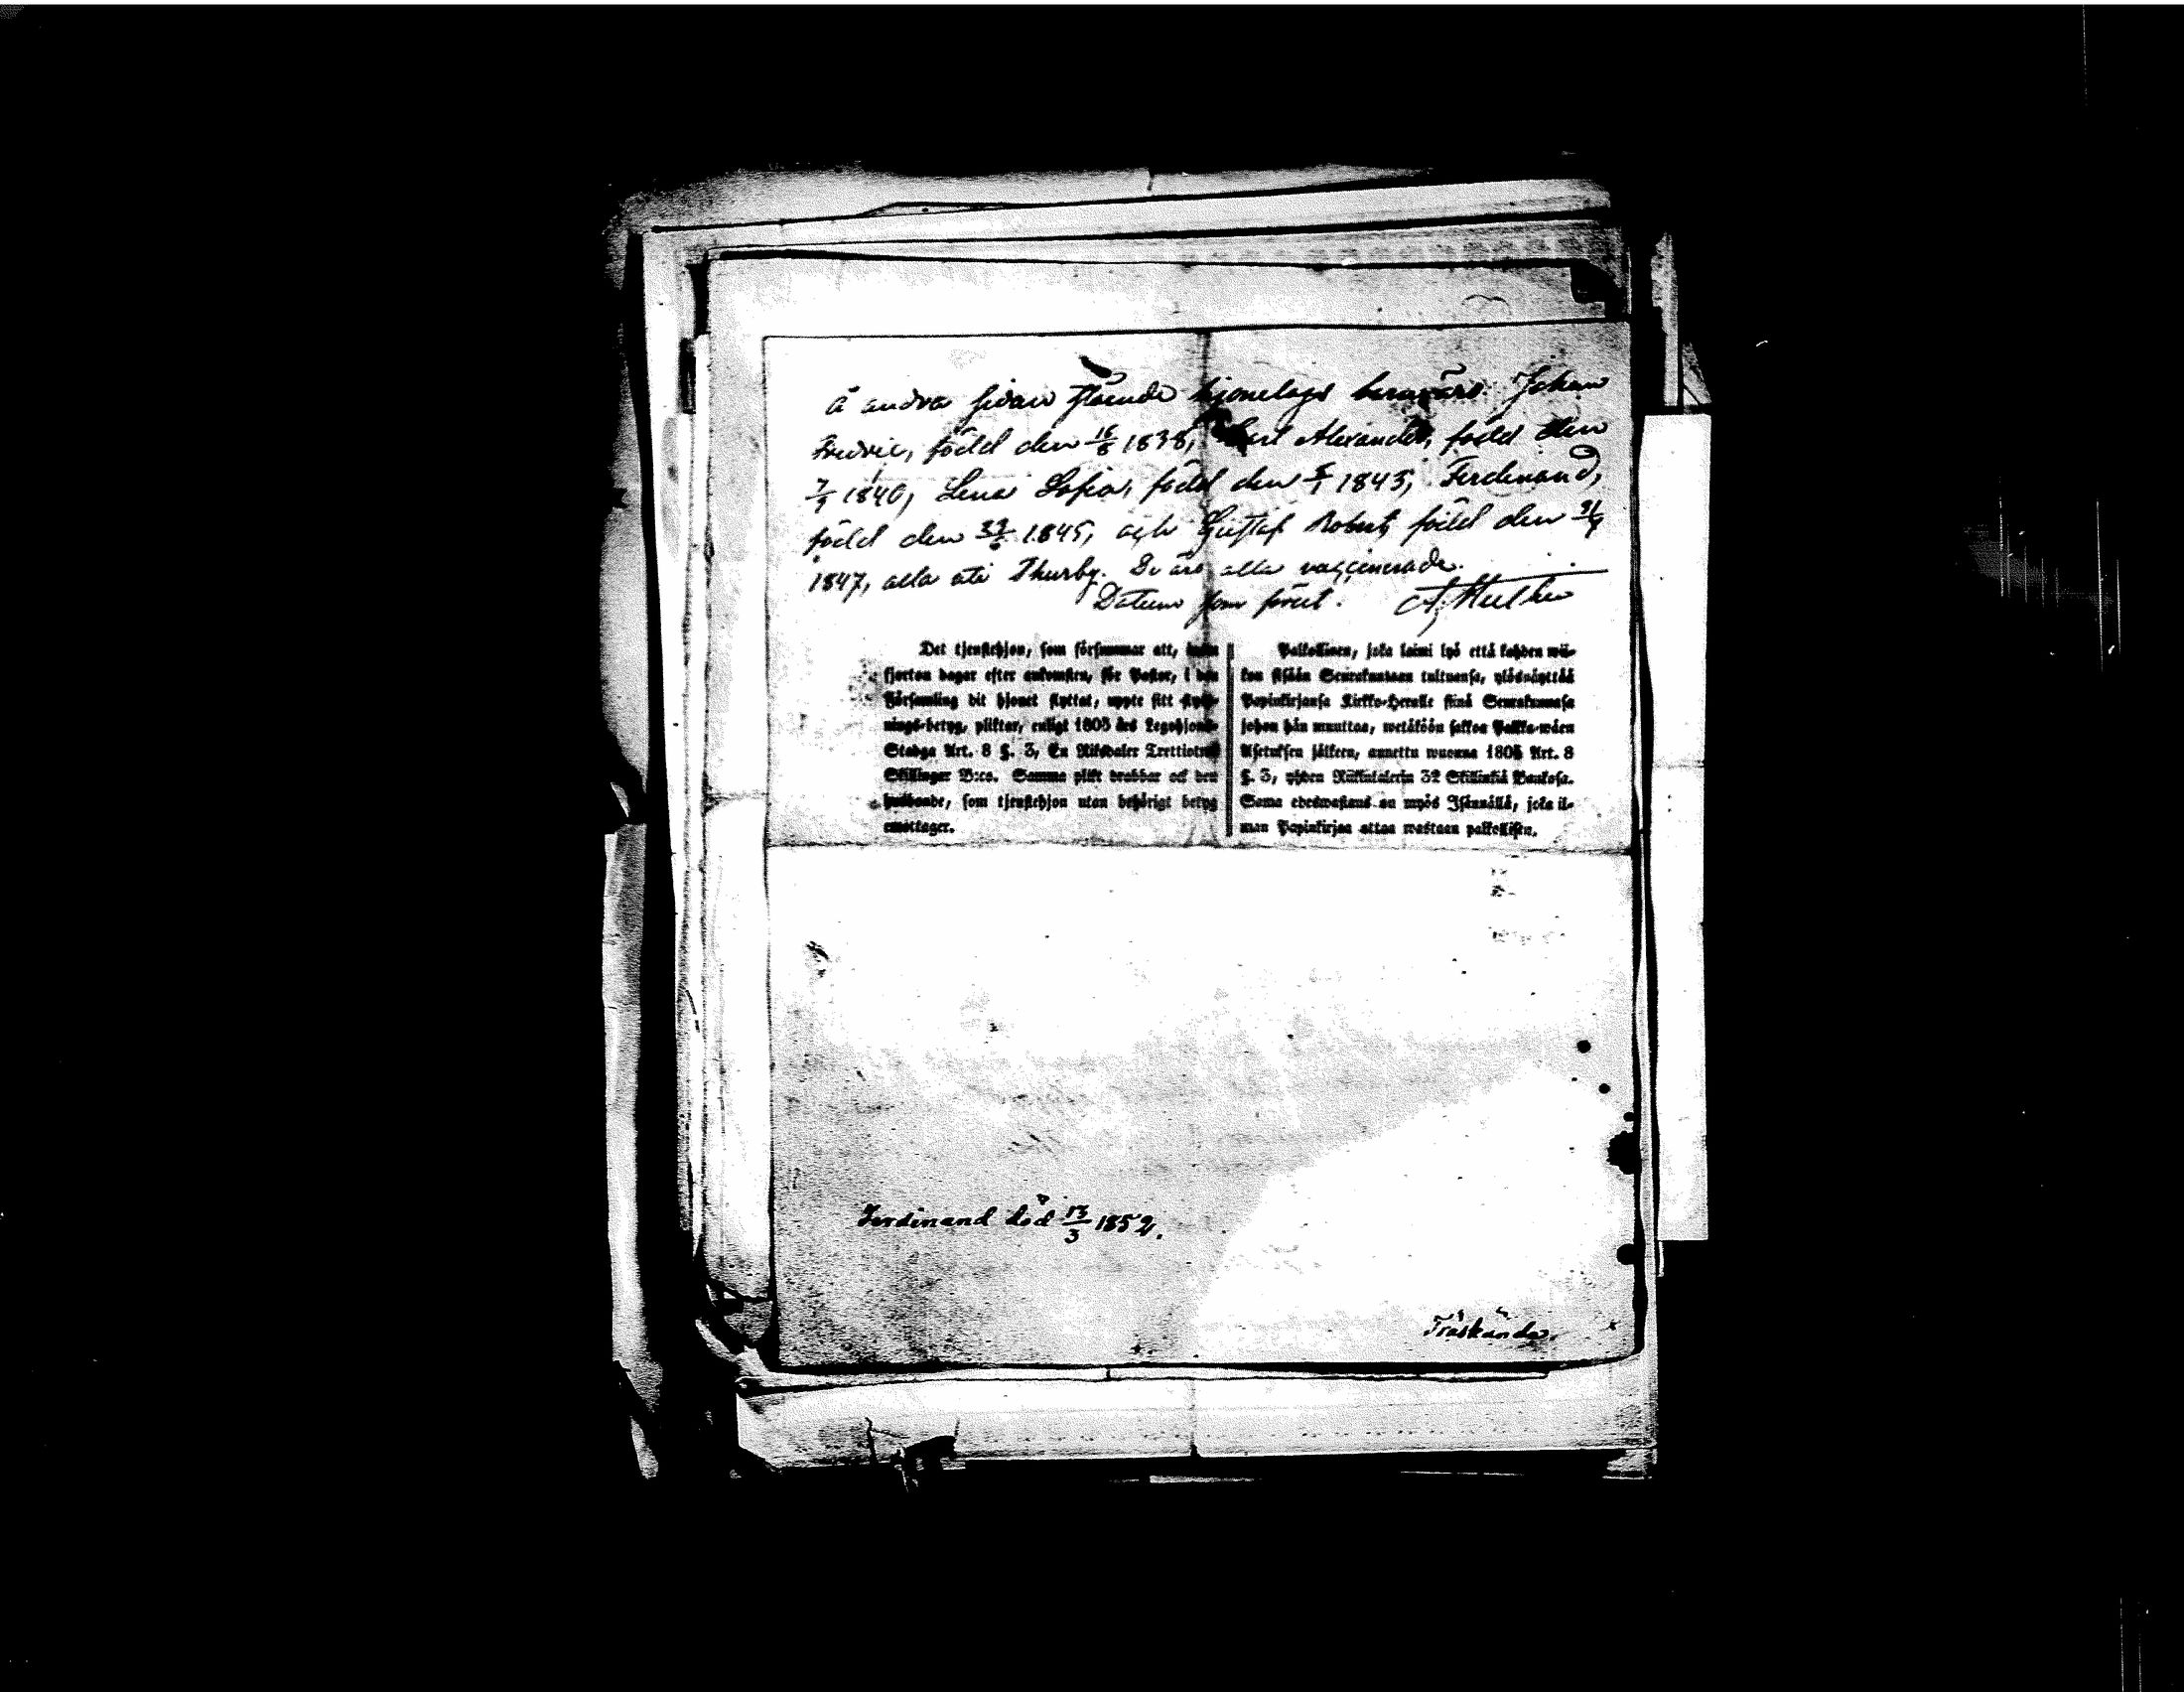 å andra sidan stående hjonelags barn äro: Johan
Fredric, född den 16/8 1838, Carl Alexander, född den
7/9 1840, Lena Sofia, född den 1843, Ferdinand,
född den 1845, och Gustaf Robert, född den
1847, alla uti Thurby. De äro alla vaccinerade.
Datum som förut.
Det tjenstehjon, som försummar att, inom
fjorton dagar efter ankomsten, för Pastor, i den
Församling dit hjonet flyttat, uppte sitt flytt-
nings-betyg, pliktar, enligt 1805 års Legohjons-
Stadga Art. 8 §. 3, En Riksdaler Trettiotvå
Skillingar B:co. Samma plikt drabbar ock den
husbonde, som tjenstehjon utan behörigt betyg
emottager.
Palkollinen, joka laimi lyö että kahden wii-
kon sisään Seurakuntaan tultuansa, ylösnäyttää
Papinkirjansa Kirkko-Herralle siinä Seurakunnasa
johon hän muuttaa, wetäköön sakkoa Palkka-wäen
Asetuksen jälkeen, annettu wuonna 1805 Art. 8
§. 3, yhden Riikintalerin 32 Skillinkiä Bankosa.
Sama edeswastaus on myös Isännällä, joka il-
man Papinkirjaa ottaa wastaan palkollisen.
Ferdinand död 13/3 1852.
Träskända.